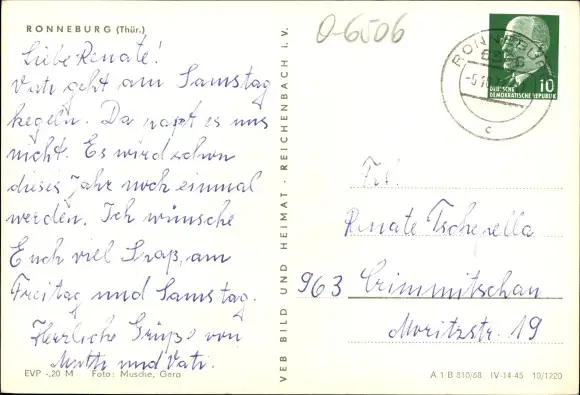 RONNEBURG (Thür.)
Liebe Renate!
Vati geht am Samstag
kegeln. Da paßt es uns
nicht. Es wird schon
dieses Jahr noch einmal
werden. Ich wünsche
Euch viel Spaß am
Freitag und Samstag.
Herzliche Grüße von
Mutti und Vati.
EVP -,20 M Foto: Musche, Gera
VEB BILD UND HEIMAT · REICHENBACH I. V.
0-6506
RONNEBURG
6506
-5.10.
c
10
DEUTSCHE
DEMOKRATISCHE REPUBLIK
Frl.
Renate Tscherella
963 Crimmitschau
Moritzstr. 19
A 1 B 810/68 IV-14-45 10/1220